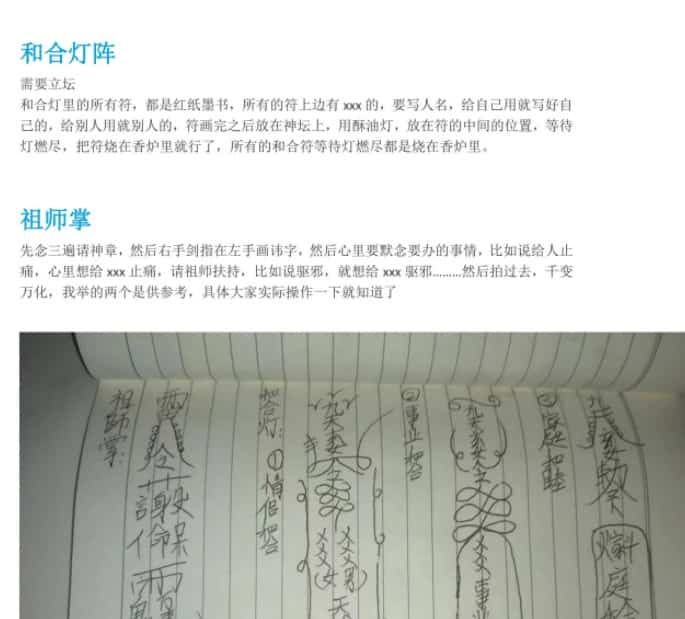 和合灯阵
需要立坛
和合灯里的所有符，都是红纸墨书，所有的符上边有 xxx 的，要写人名，给自己用就写好自
己的，给别人用就别人的，符画完之后放在神坛上，用酥油灯，放在符的中间的位置，等待
灯燃尽，把符烧在香炉里就行了，所有的和合符等待灯燃尽都是烧在香炉里。
祖师掌
先念三遍请神章，然后右手剑指在左手画讳字，然后心里要默念要办的事情，比如说给人止
痛，心里想给 xxx 止痛，请祖师扶持，比如说驱邪，就想给 xxx 驱邪………然后拍过去，千变
万化，我举的两个是供参考，具体大家实际操作一下就知道了
祖師掌：
和合灯：①情侣和合
②事业和合
③家庭和睦